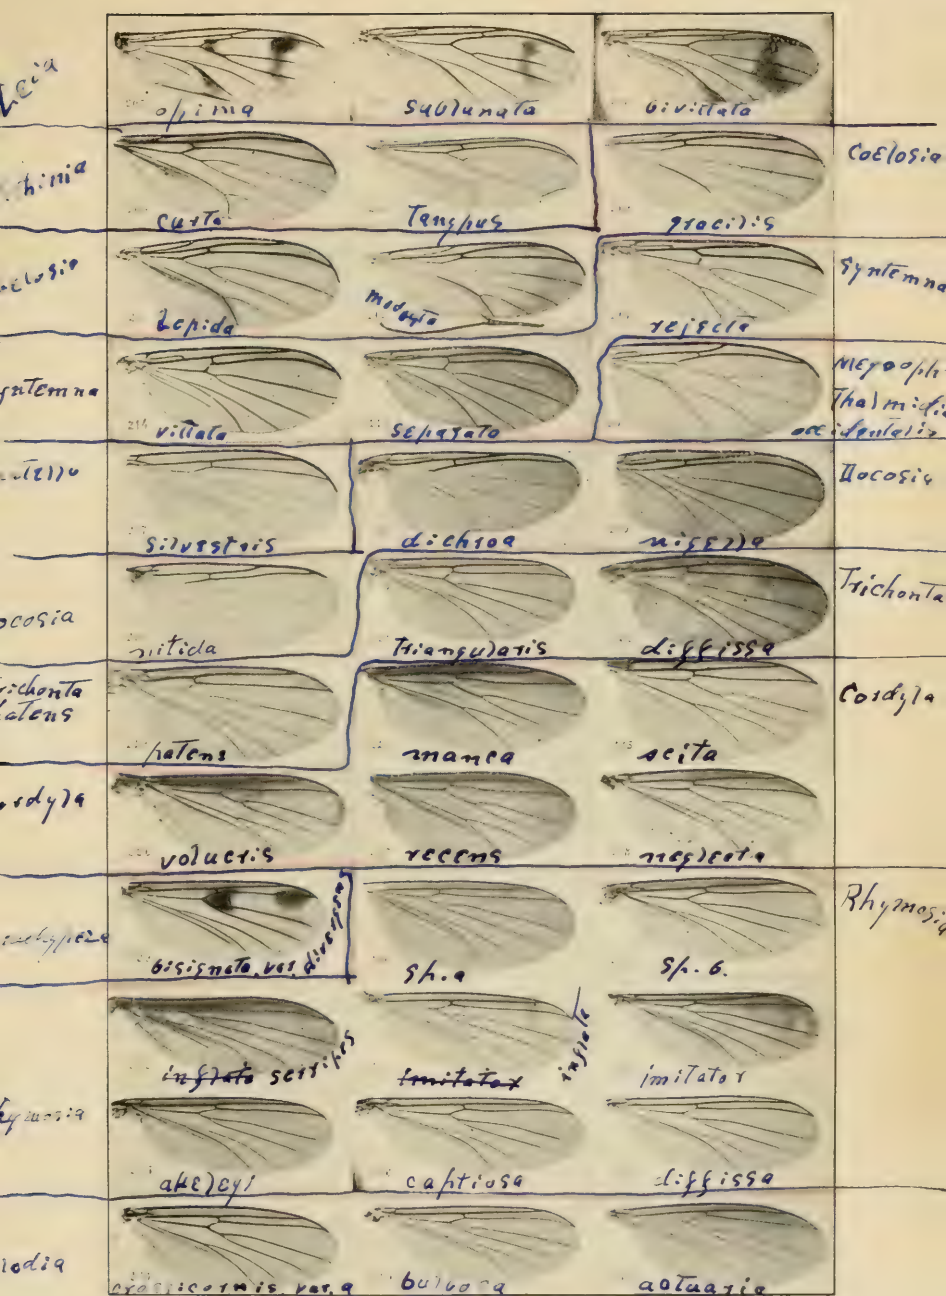 Leia
opima sublunata bivittata
Coelosia
curta Tanypus gracilis
Lepida modesta rejecta
Syntemna
vittata separata
Megoph
Thalmidia
occidentalis
silvestris dichroa nigella
Docosia
nitida Triangularis diffissa
Trichonta
patens manca scita
Cordyla
volucris recens neglecta
bisignata var. divergens sp. a sp. b.
Rhymosia
inflata serripes imitator inflata imitator
akeleyi captiosa diffissa
crassicornis var. a bulbosa actuaria